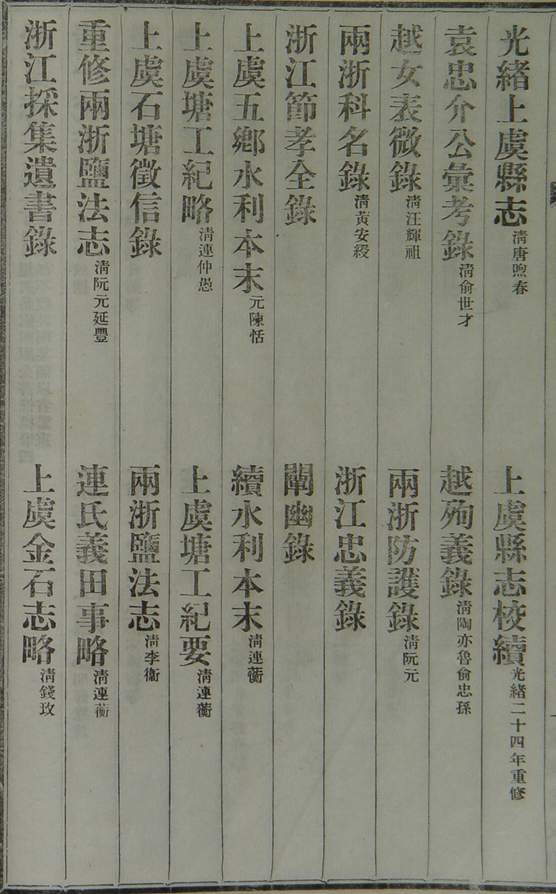 光緒上虞縣志清唐煦春
上虞縣志校續光緒二十四年重修
袁忠介公彙考錄清俞世才
越殉義錄清陶亦魯俞忠孫
越女表微錄清汪輝祖
兩浙防護錄清阮元
兩浙科名錄清黃安綬
浙江忠義錄
浙江節孝全錄
闡幽錄
上虞五鄉水利本末元陳恬
續水利本末清連蘅
上虞塘工紀略清連仲愚
上虞塘工紀要清連蘅
上虞石塘徵信錄
兩浙鹽法志清李衞
重修兩浙鹽法志清阮元延豐
連氏義田事略清連蘅
浙江採集遺書錄
上虞金石志略清錢玫